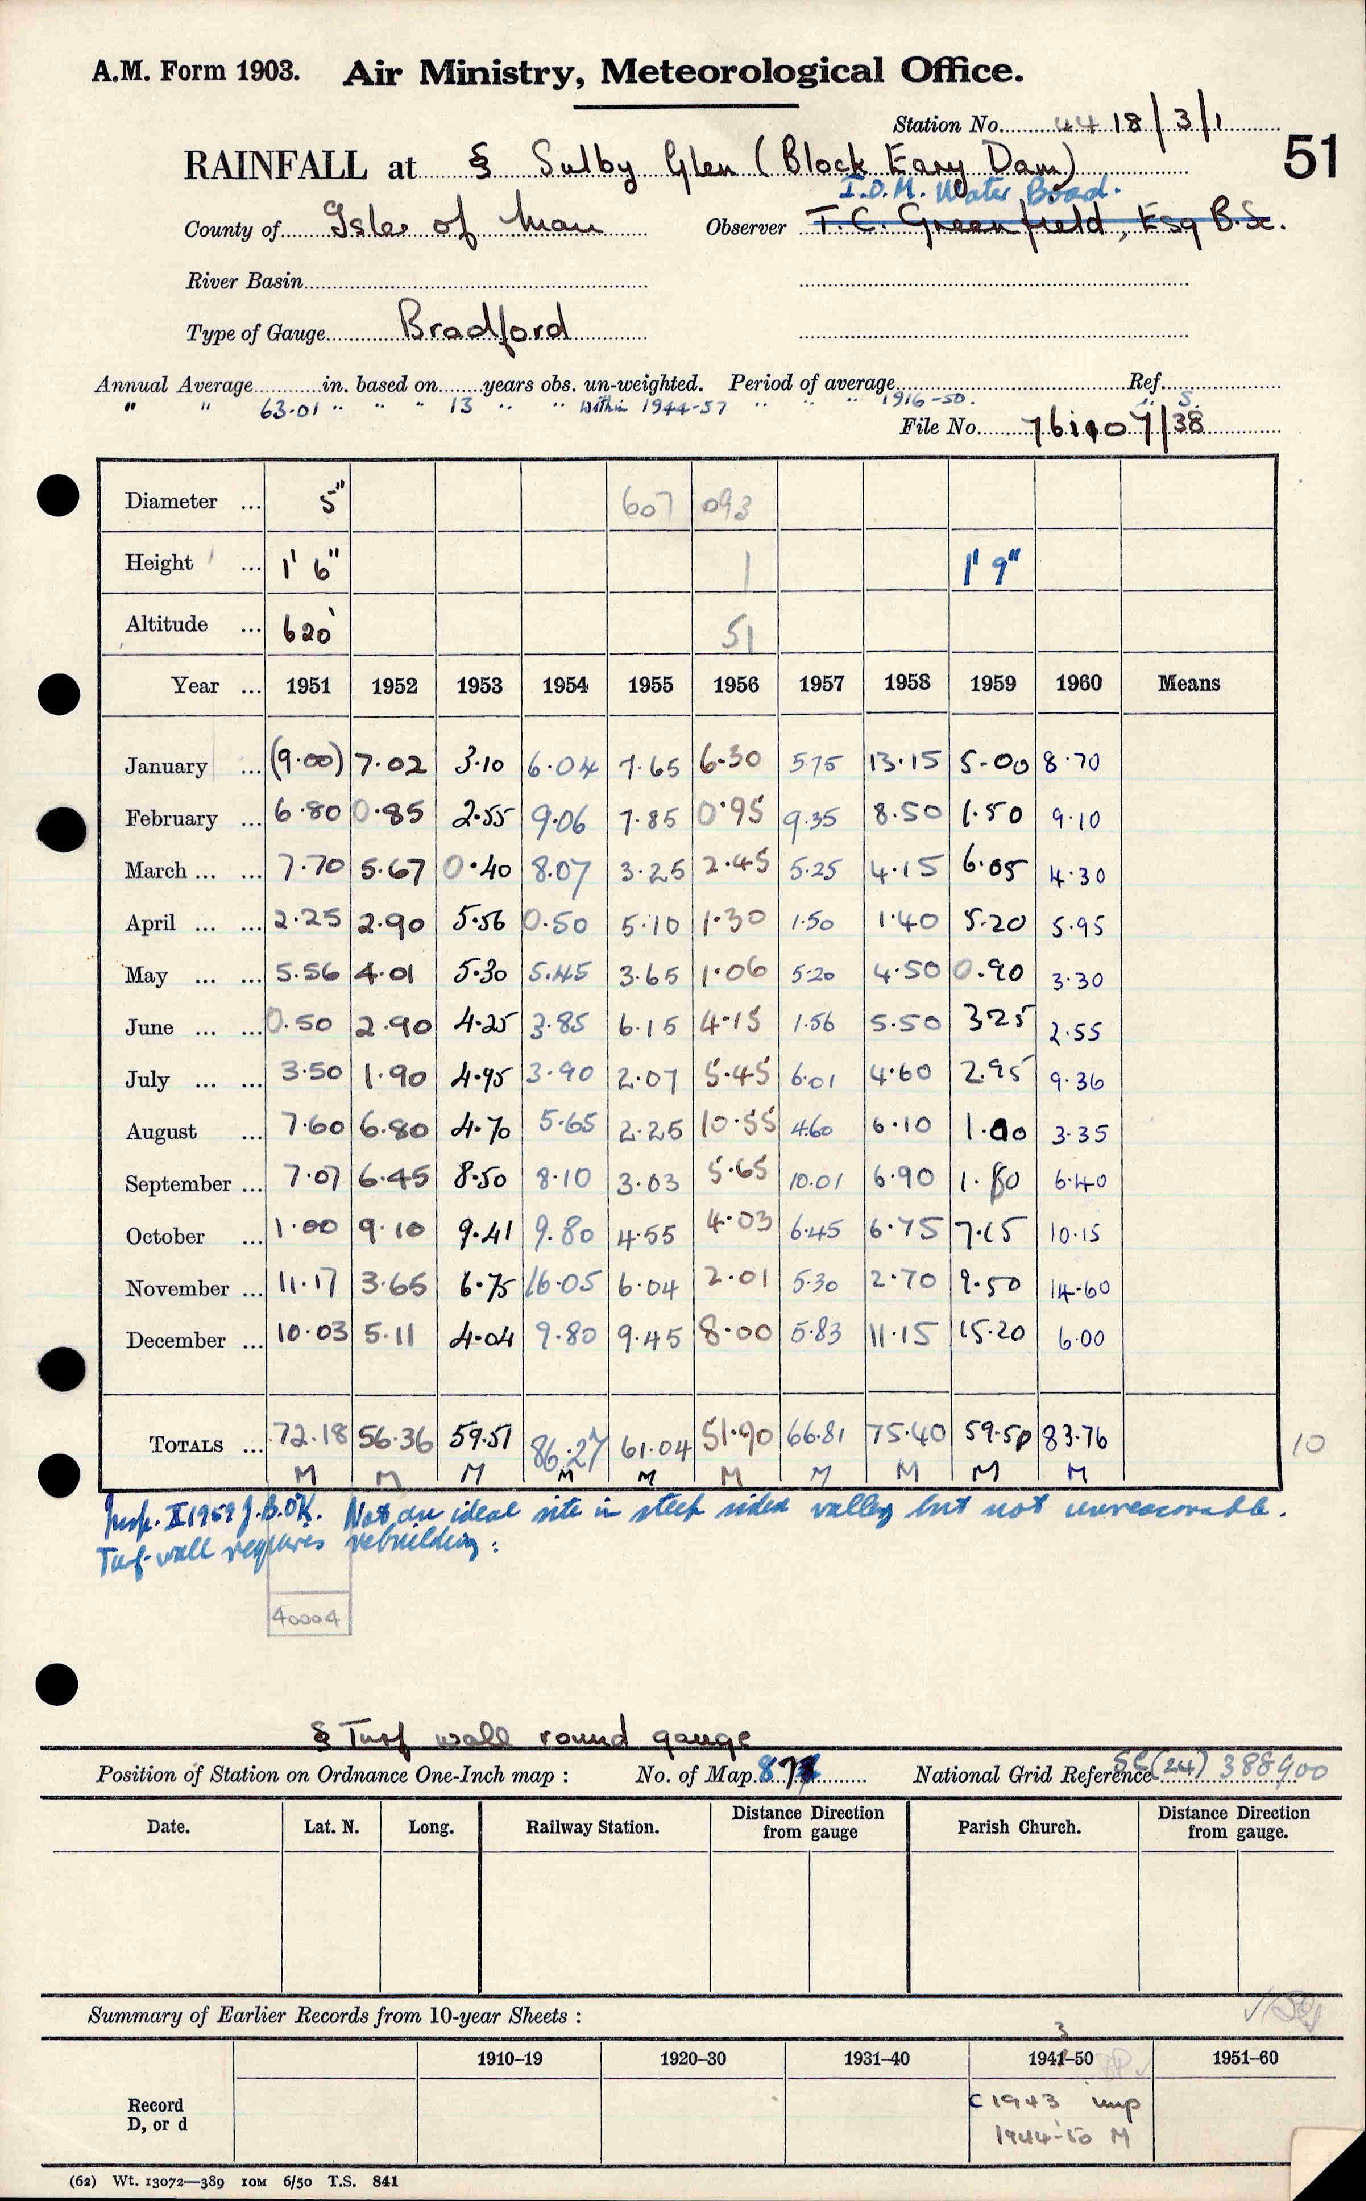 A.M. Form 1903. Air Ministry, Meteorological Office.
Station No. 44 18/3/1
51
RAINFALL at § Sulby Glen (Block Eary Dam)
I.O.M. Water Board.
County of Isle of Man Observer T.C. Greenfield, Esq B.Sc.
River Basin
Type of Gauge Bradford
Annual Average in. based on years obs. un-weighted. Period of average Ref.
" " 63.01 " " " 13 " " Within 1944-57 " " " 1916-50. " S.
File No. 761907/38
Diameter ... 5" 607 093
Height ... 1' 6" 1 1' 9"
Altitude ... 620' 51
Year ... 1951 1952 1953 1954 1955 1956 1957 1958 1959 1960 Means
January ... (9.00) 7.02 3.10 6.04 7.65 6.30 5.75 13.15 5.00 8.70
February ... 6.80 0.85 2.55 9.06 7.85 0.95 9.35 8.50 1.50 9.10
March ... ... 7.70 5.67 0.40 8.07 3.25 2.45 5.25 4.15 6.05 4.30
April ... ... 2.25 2.90 5.56 0.50 5.10 1.30 1.50 1.40 5.20 5.95
May ... ... 5.56 4.01 5.30 5.45 3.65 1.06 5.20 4.50 0.90 3.30
June ... ... 0.50 2.90 4.25 3.85 6.15 4.15 1.56 5.50 3.25 2.55
July ... ... 3.50 1.90 4.95 3.90 2.07 5.45 6.01 4.60 2.95 9.36
August ... 7.60 6.80 4.70 5.65 2.25 10.55 4.60 6.10 1.00 3.35
September ... 7.07 6.45 8.50 8.10 3.03 5.65 10.01 6.90 1.80 6.40
October ... 1.00 9.10 9.41 9.80 4.55 4.03 6.45 6.75 7.15 10.15
November ... 11.17 3.65 6.75 16.05 6.04 2.01 5.30 2.70 9.50 14.60
December ... 10.03 5.11 4.04 9.80 9.45 8.00 5.83 11.15 15.20 6.00
TOTALS ... 72.18 56.36 59.51 86.27 61.04 51.90 66.81 75.40 59.50 83.76 10
M M M M M M M M M M
Insp. II 1959 J.B. OK. Not an ideal site in steep sided valley but not unreasonable.
Turf-wall requires rebuilding:
40004
§ Turf wall round gauge
Position of Station on Ordnance One-Inch map : No. of Map 87 National Grid Reference SC(24) 388900
Date. Lat. N. Long. Railway Station. Distance Direction from gauge Parish Church. Distance Direction from gauge.
Summary of Earlier Records from 10-year Sheets :
3
1910–19 1920–30 1931–40 1941–50 1951–60
Record
D, or d
C 1943 imp
1944-50 M
(62) Wt. 13072—389 IOM 6/50 T.S. 841